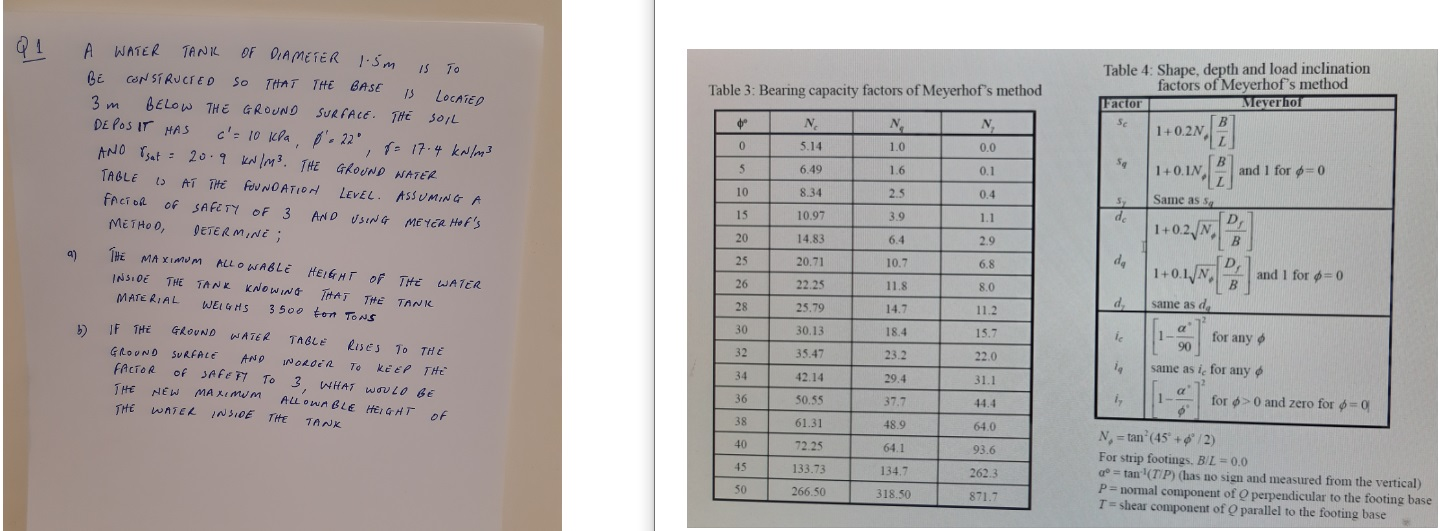 Q1 A WATER TANK OF DIAMETER 1.5m IS TO
BE CONSTRUCTED SO THAT THE BASE IS LOCATED
3m BELOW THE GROUND SURFACE. THE SOIL
DEPOSIT HAS c'= 10 kPa, ϕ'= 22°, γ= 17.4 kN/m3
AND γsat = 20.9 kN/m3. THE GROUND WATER
TABLE IS AT THE FOUNDATION LEVEL. ASSUMING A
FACTOR OF SAFETY OF 3 AND USING MEYERHOF'S
METHOD, DETERMINE ;
a) THE MAXIMUM ALLOWABLE HEIGHT OF THE WATER
INSIDE THE TANK KNOWING THAT THE TANK
MATERIAL WEIGHS 3500 TONS
b) IF THE GROUND WATER TABLE RISES TO THE
GROUND SURFACE AND INORDER TO KEEP THE
FACTOR OF SAFETY TO 3, WHAT WOULD BE
THE NEW MAXIMUM ALLOWABLE HEIGHT OF
THE WATER INSIDE THE TANK
Table 3: Bearing capacity factors of Meyerhof's method
ϕ° Nc Nq Nγ
0 5.14 1.0 0.0
5 6.49 1.6 0.1
10 8.34 2.5 0.4
15 10.97 3.9 1.1
20 14.83 6.4 2.9
25 20.71 10.7 6.8
26 22.25 11.8 8.0
28 25.79 14.7 11.2
30 30.13 18.4 15.7
32 35.47 23.2 22.0
34 42.14 29.4 31.1
36 50.55 37.7 44.4
38 61.31 48.9 64.0
40 72.25 64.1 93.6
45 133.73 134.7 262.3
50 266.50 318.50 871.7
Table 4: Shape, depth and load inclination
factors of Meyerhof's method
Factor Meyerhof
sc 1+0.2Nϕ[B/L]
sq 1+0.1Nϕ[B/L] and 1 for ϕ=0
sγ Same as sq
dc 1+0.2√Nϕ[Df/B]
dq 1+0.1√Nϕ[Df/B] and 1 for ϕ=0
dγ same as dq
ic [1-α°/90]² for any ϕ
iq same as ic for any ϕ
iγ [1-α°/ϕ°]² for ϕ>0 and zero for ϕ=0
Nϕ = tan²(45°+ϕ°/2)
For strip footings, B/L = 0.0
α° = tan-1(T/P) (has no sign and measured from the vertical)
P = normal component of Q perpendicular to the footing base
T = shear component of Q parallel to the footing base